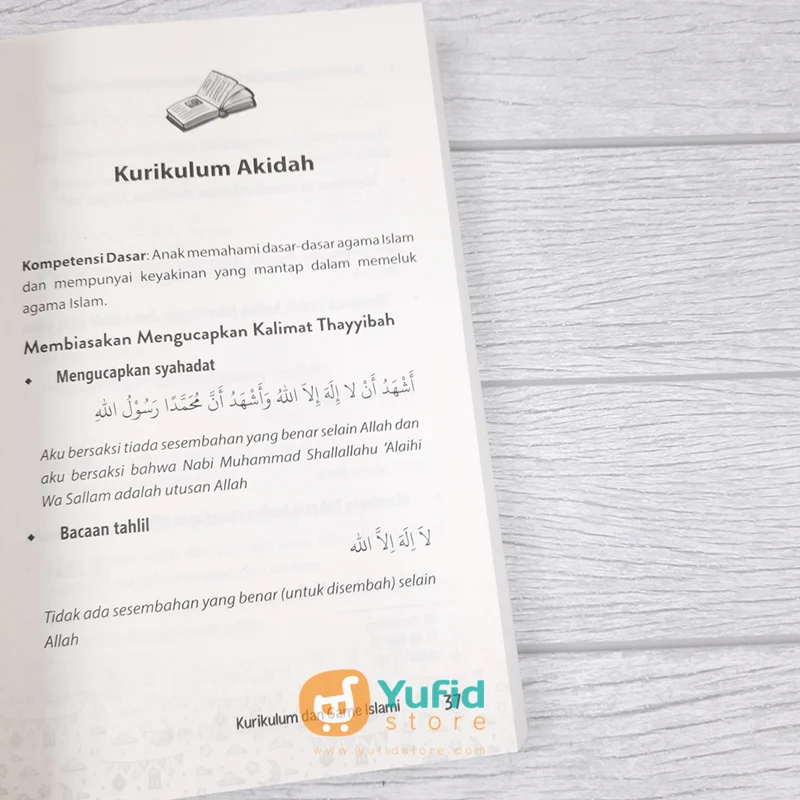 Kurikulum Akidah
Kompetensi Dasar: Anak memahami dasar-dasar agama Islam
dan mempunyai keyakinan yang mantap dalam memeluk
agama Islam.
Membiasakan Mengucapkan Kalimat Thayyibah
◆ Mengucapkan syahadat
أَشْهَدُ أَنْ لا إِلَهَ إِلاَ اللهُ وَأَشْهَدُ أَنَّ مُحَمَّدًا رَسُوْلُ اللهِ
Aku bersaksi tiada sesembahan yang benar selain Allah dan
aku bersaksi bahwa Nabi Muhammad Shallallahu ‘Alaihi
Wa Sallam adalah utusan Allah
◆ Bacaan tahlil
لاَ اِلَهَ اِلاَّ الله
Tidak ada sesembahan yang benar (untuk disembah) selain
Allah
Kurikulum dan Game Islami 37
Yufid
store
www.yufidstore.com